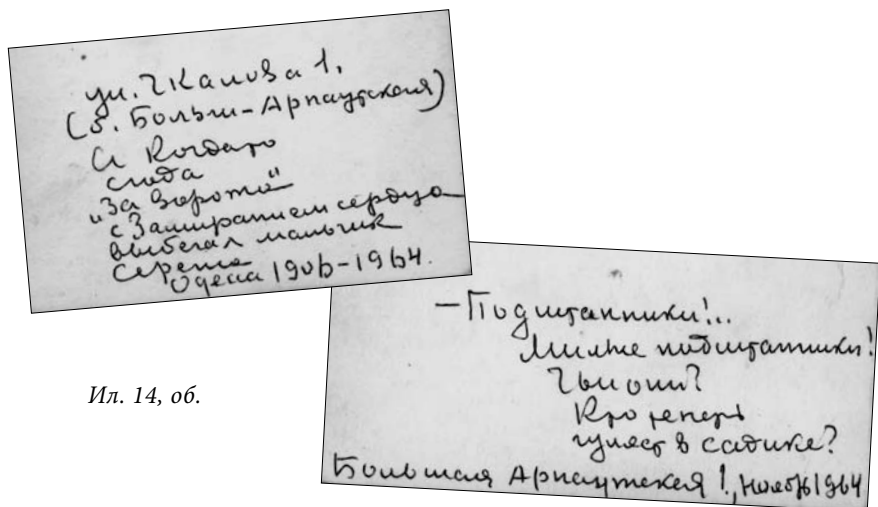 ул. Чкалова 1.
(б. Больш-Арнаутская)
А Когдато
сюда
„За Ворота"
с Замиранием сердца
выбегал мальчик
Сережа
Одесса 1906–1964.
— Подштанники!..
Милые подштанники!
Чьи они?
Кто теперь
гуляет в садике?
Большая Арнаутская 1., ноябрь 1964
Ил. 14, об.